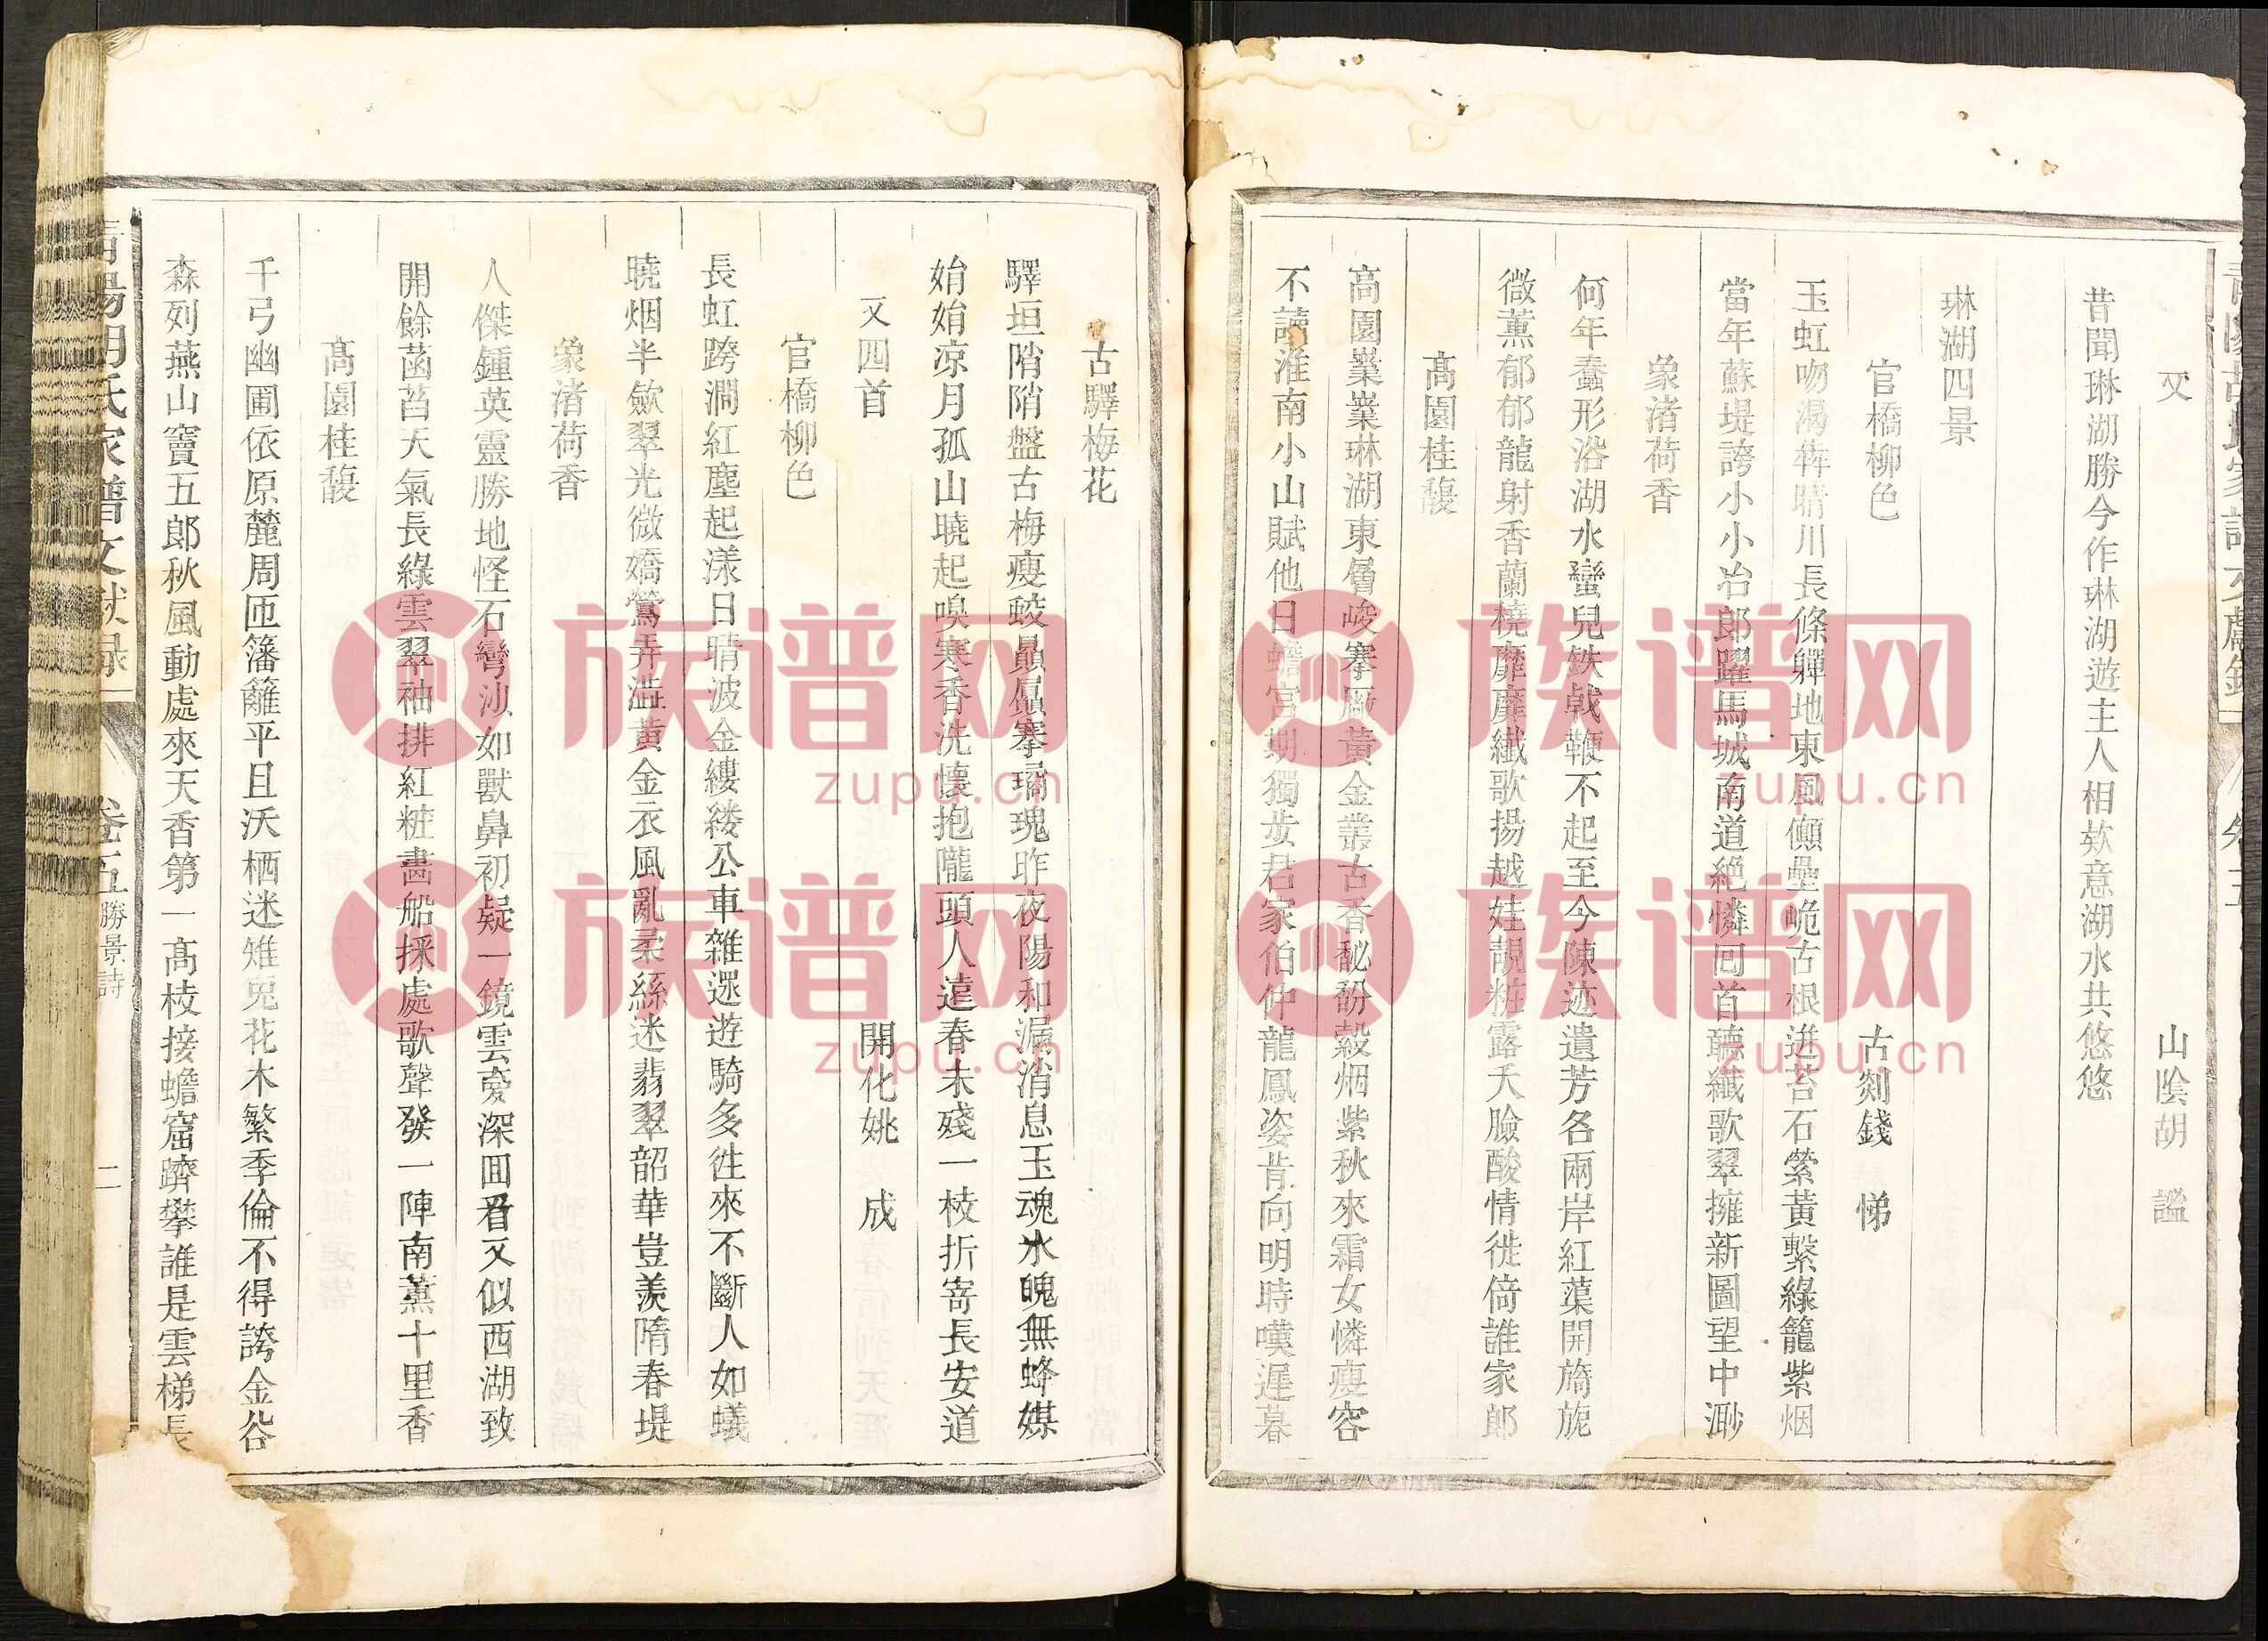 又 山陰胡 謐
昔聞琳湖勝今作琳湖遊主人相欵意湖水共悠悠
琳湖四景
官橋柳色 古剡錢 悌
玉虹吻渴犇晴川長條嚲地東風儛壘嵬古根迸苔石縈黃繫綠籠紫烟
當年蘇堤誇小小冶郎躍馬城南道絕憐回首聽纖歌翠擁新圖望中渺
象渚荷香
何年蠡形浴湖水蠻兒鉄戟鞭不起至今陳迹遺芳各兩岸紅蕖開旖旎
微薰郁郁龍射香蘭橈靡靡纖歌揚越娃靚粧露天臉酸情徙倚誰家郎
髙園桂馥
高園嶪嶪琳湖東層峻搴厰黃金叢古香馝馚縠烟紫秋來霜女憐瘦容
不讀淮南小山賦他日蟾宮期獨步君家伯仲龍鳳姿肯向明時嘆遲暮
古驛梅花
驛垣陗陗盤古梅瘦蛟贔屭搴璚瑰昨夜陽和漏消息玉魂氷魄無蜂媒
娟娟凉月孤山曉起嗅寒香洗懷抱隴頭人遠春未殘一枝折寄長安道
又四首 開化姚 成
官橋柳色
長虹跨澗紅塵起漾日晴波金縷縷公車雜遝遊騎多徃來不斷人如蟻
曉烟半歛翠光微嬌鶯弄澁黃金衣風亂柔絲迷翡翠韶華豈羨隋春堤
象渚荷香
人傑鍾英靈勝地怪石彎沙如獸鼻初疑一鏡雲㝹深囬看又似西湖致
開餘菡萏天氣長綠雲翠袖排紅粧畵船採處歌聲發一陣南薰十里香
髙園桂馥
千弓幽圃依原麓周匝籓籬平且沃栖迷雉兎花木繁季倫不得誇金谷
森列燕山竇五郎秋風動處來天香第一高枝接蟾窟躋攀誰是雲梯長
卷五 勝景詩 二
族谱网
zupu.cn
族谱网
zupu.cn
族谱网
zupu.cn
族谱网
zupu.cn